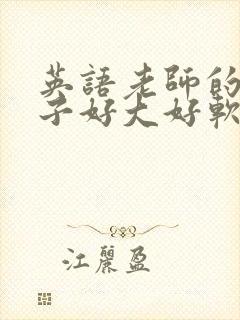 英語老師的
子好大好軟
江麗盈